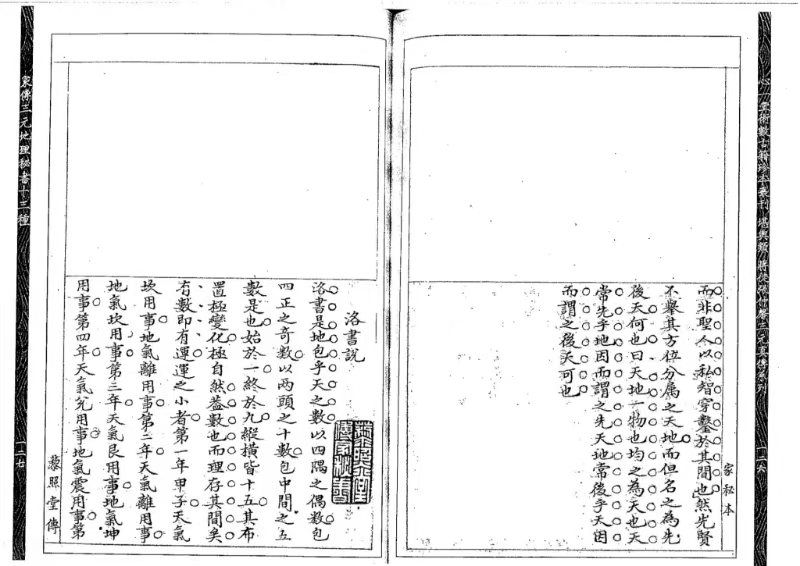 心一堂術數古籍珍本叢刊 堪輿類
一二六
家秘本
而非聖人以私智穿鑿於其間也然先賢
不舉其方位分屬之天地而但名之為先
後天何也曰天地一物也均之為天也天
常先乎地因而謂之先天地常後乎天因
而謂之後天可也
洛書說
洛書是地包乎天之數以四隅之偶數包
四正之奇數以兩頭之十數包中間之五
數是也始於一終於九縱橫皆十五其布
置極變化極自然蓋數也而理存其間矣
有數即有運運之小者第一年甲子天氣
坎用事地氣離用事第二年天氣離用事
地氣坎用事第三年天氣艮用事地氣坤
用事第四年天氣兌用事地氣震用事第
藜照堂傳
家傳三元地理秘書十三種
一二七